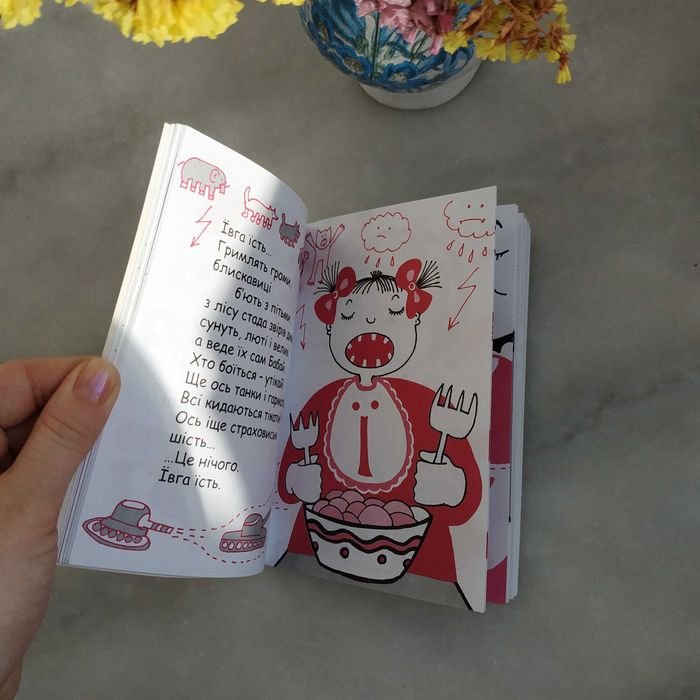 Ївга їсть...
Гримлять громи,
блискавиці
б'ють з пітьми
з лісу стада звірів
сунуть, люті і великі
а веде їх сам Бабай
Хто боїться – утікай
Ще ось танки і гармати
Всі кидаються тікати
Ось іще страховиськ
шість...
...Це нічого.
Ївга їсть.
Ї